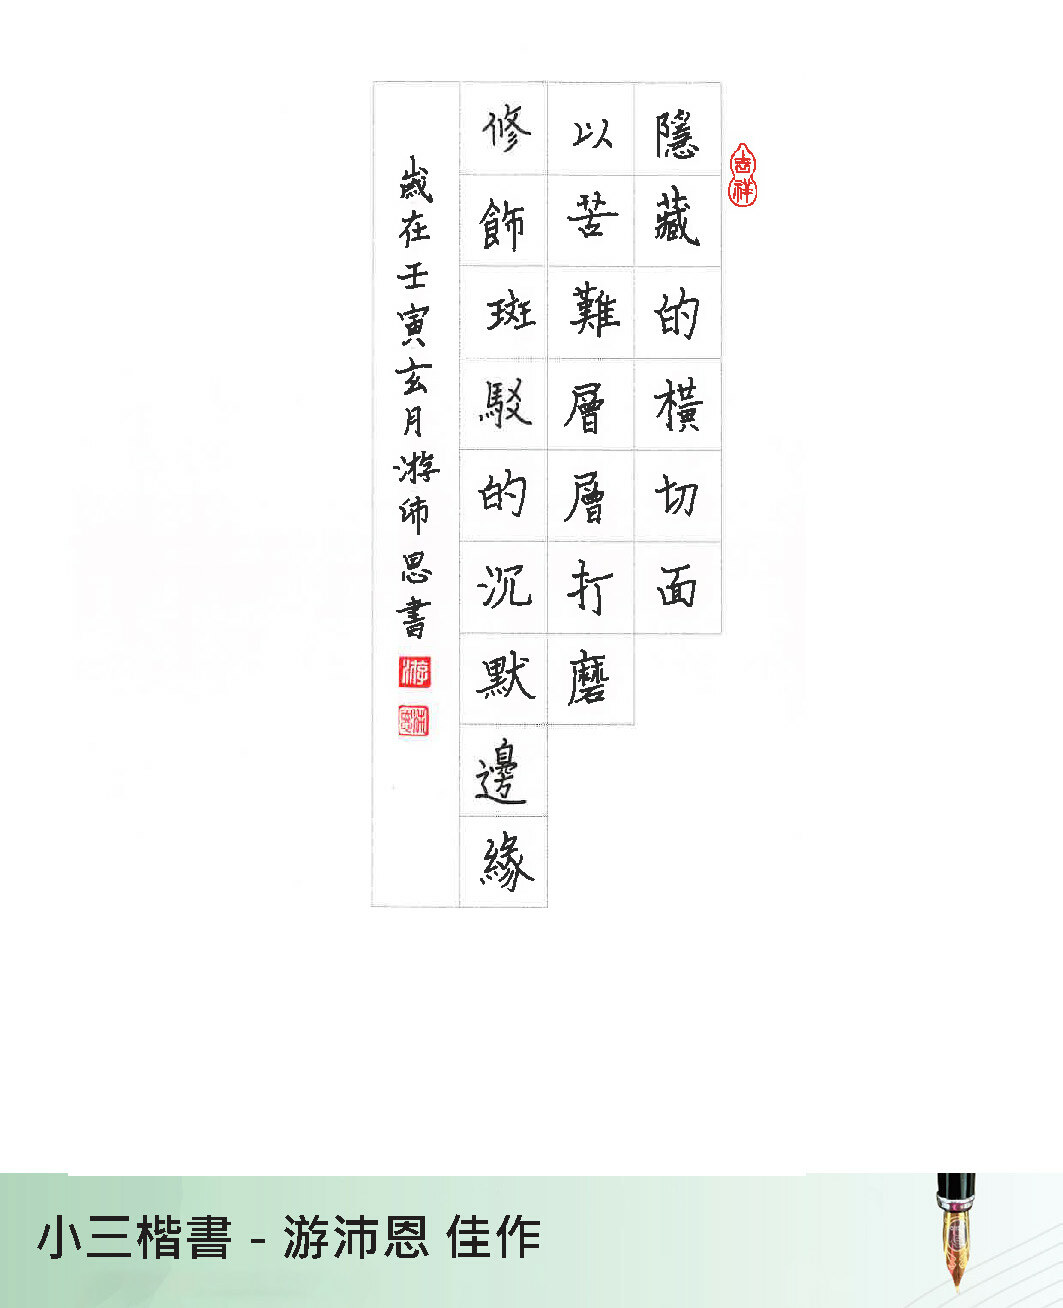 吉祥
隱藏的橫切面
以苦難層層打磨
修飾斑駁的沉默邊緣
歲在壬寅玄月游沛恩書
游
沛恩
小三楷書 - 游沛恩 佳作